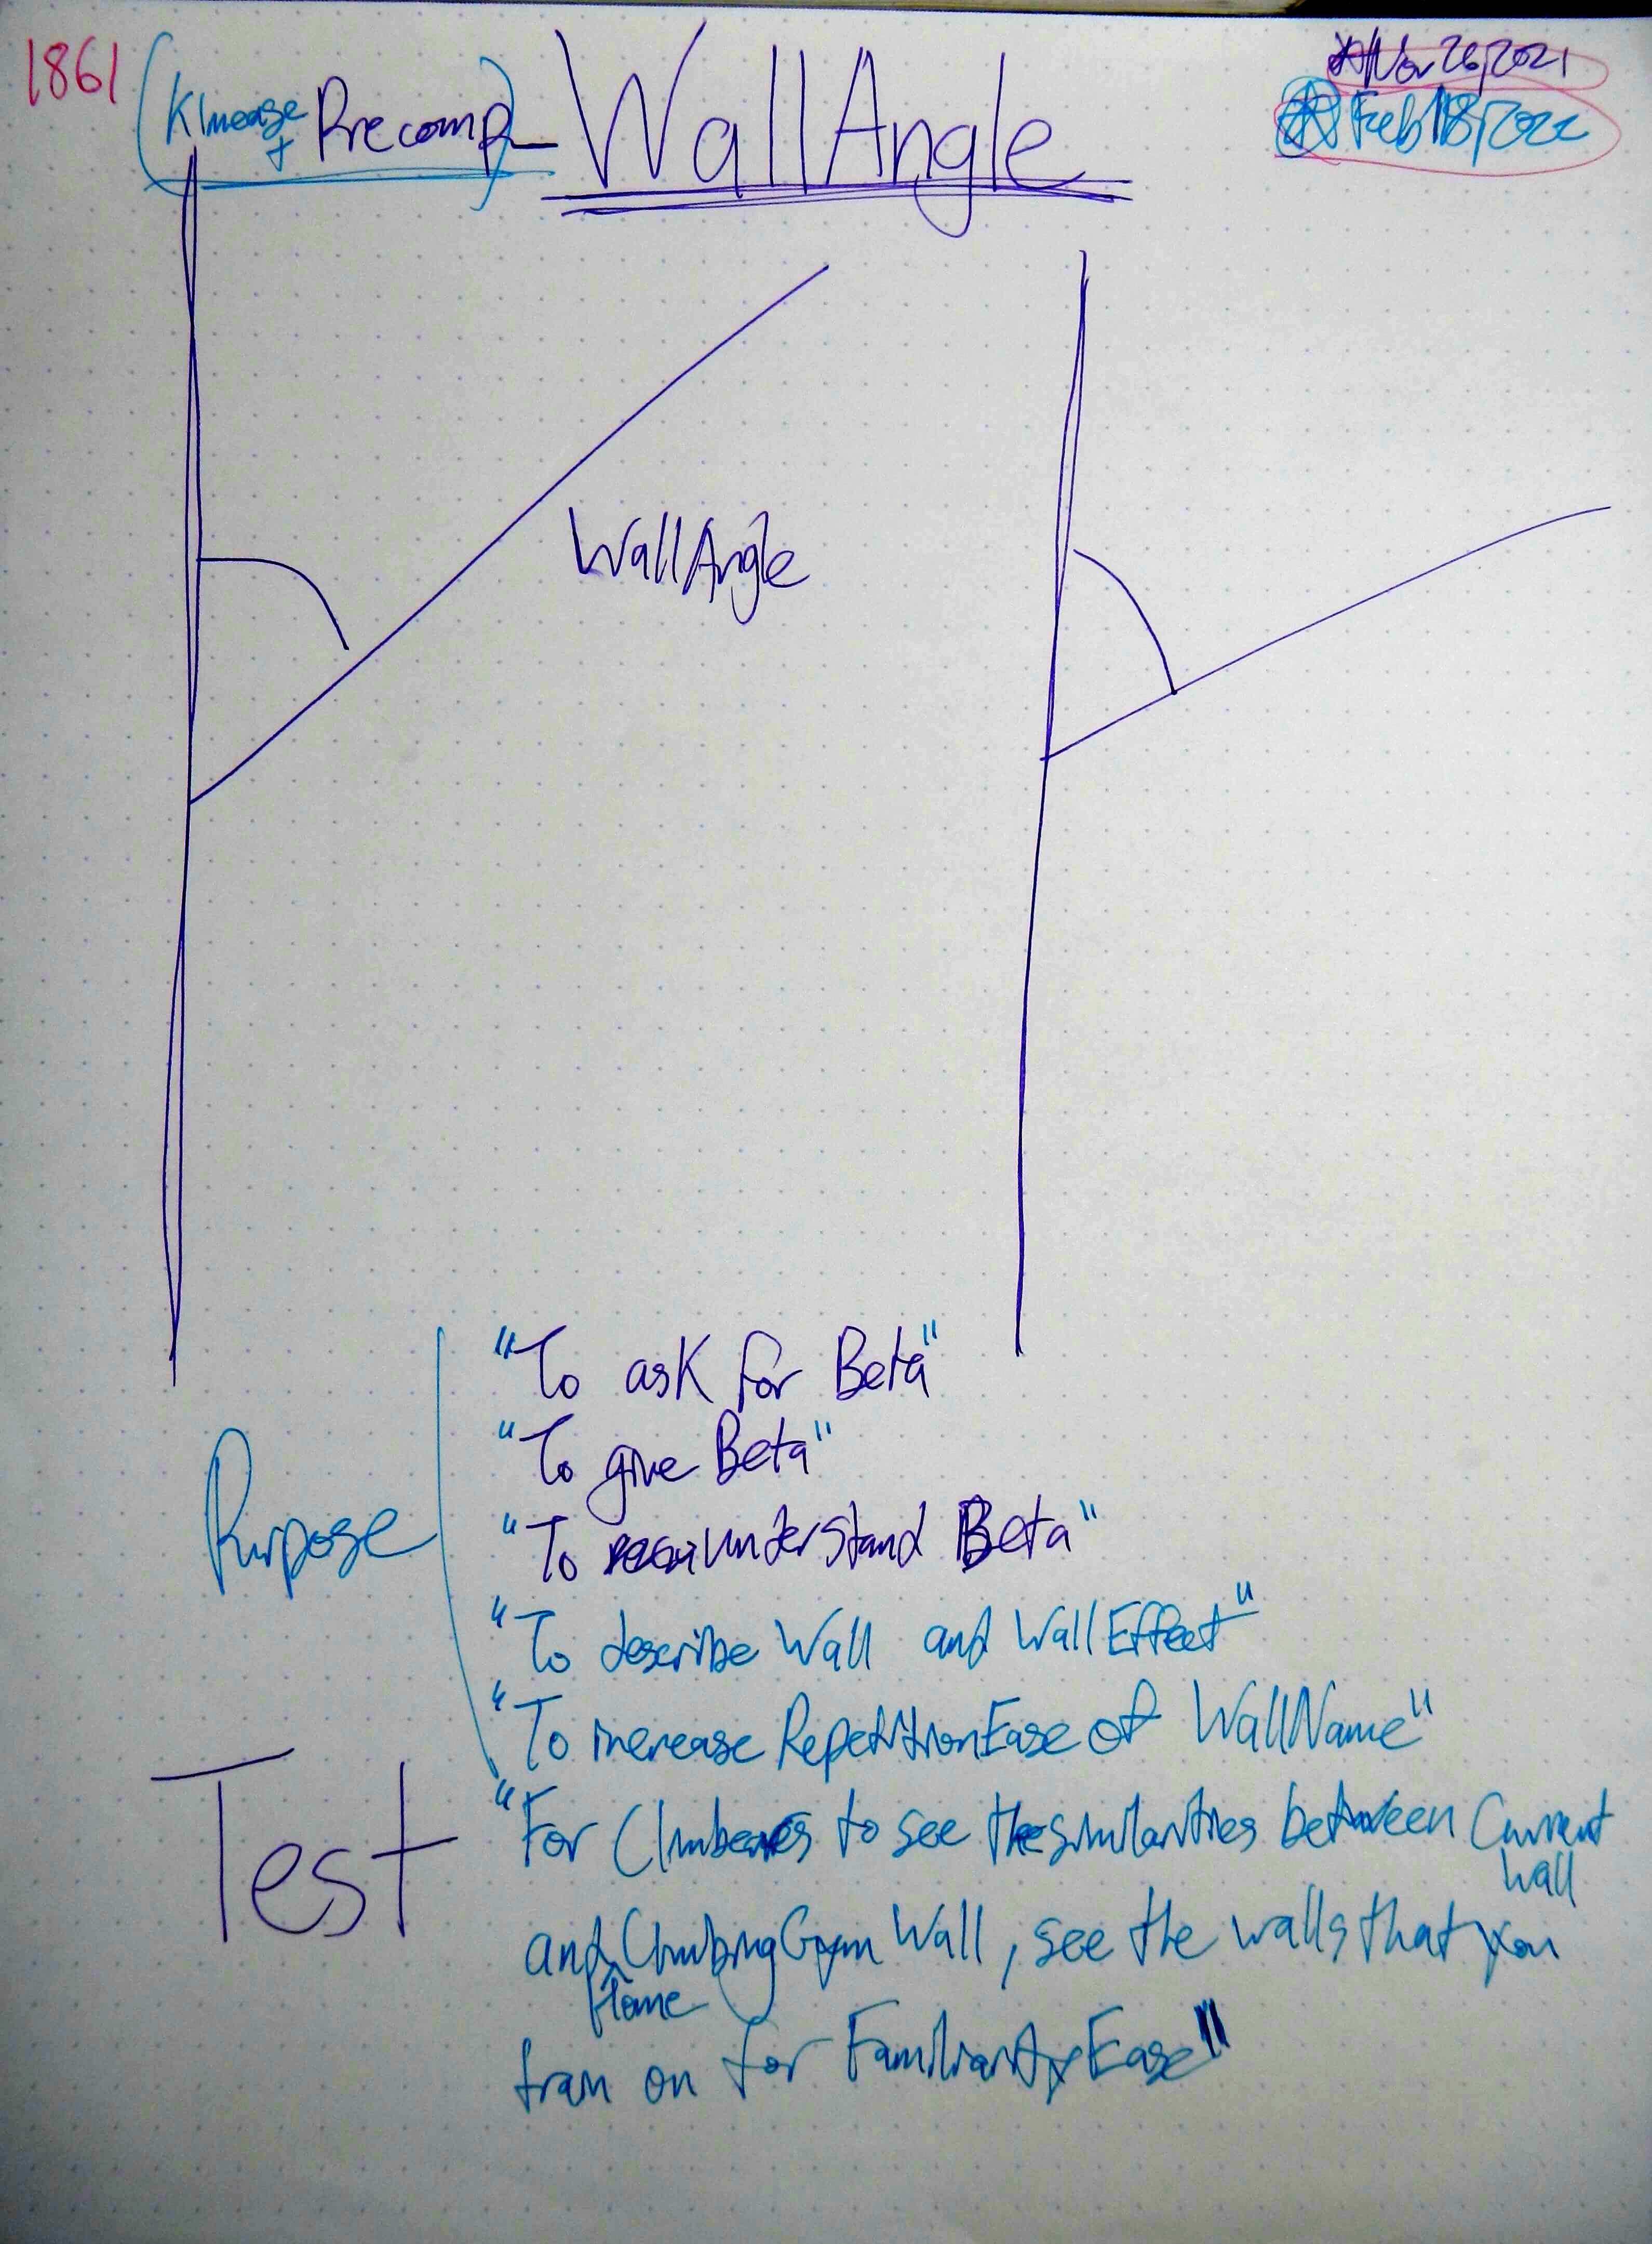 1861 (Klnease + Precomp) - WallAngle
Nov 26, 2021
Feb 18, 2022
WallAngle
Purpose
"To ask for Beta"
"To give Beta"
"To understand Beta"
"To describe Wall and WallEffect"
"To increase RepetitionEase of WallName"
Test
"For Climbers to see the similarities between Current Wall
and Home ClimbingGym Wall, see the walls that you
train on for FamiliarityEase"